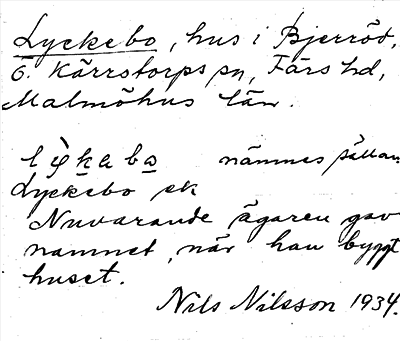 Lyckebo, hus i Bjerröd,
Ö. Kärrstorps sn, Färs hd,
Malmöhus län.
nämnes sällan
Lyckebo ek
Nuvarande ägaren gav
namnet, när han byggt
huset.
Nils Nilsson 1934.